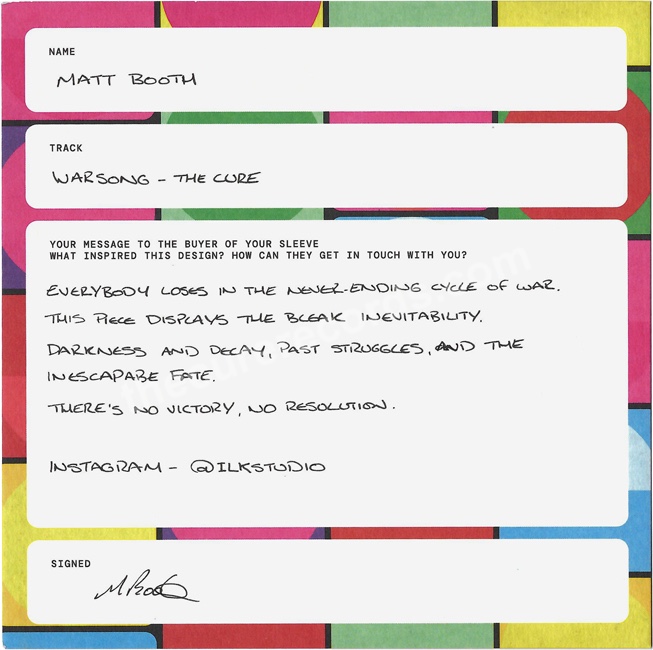 NAME
MATT BOOTH
TRACK
WARSONG - THE CURE
YOUR MESSAGE TO THE BUYER OF YOUR SLEEVE
WHAT INSPIRED THIS DESIGN? HOW CAN THEY GET IN TOUCH WITH YOU?
EVERYBODY LOSES IN THE NEVER-ENDING CYCLE OF WAR.
THIS PIECE DISPLAYS THE BLEAK INEVITABILITY.
DARKNESS AND DECAY, PAST STRUGGLES, AND THE
INESCAPABE FATE.
THERE'S NO VICTORY, NO RESOLUTION.
INSTAGRAM - @ILKSTUDIO
SIGNED
M Booth